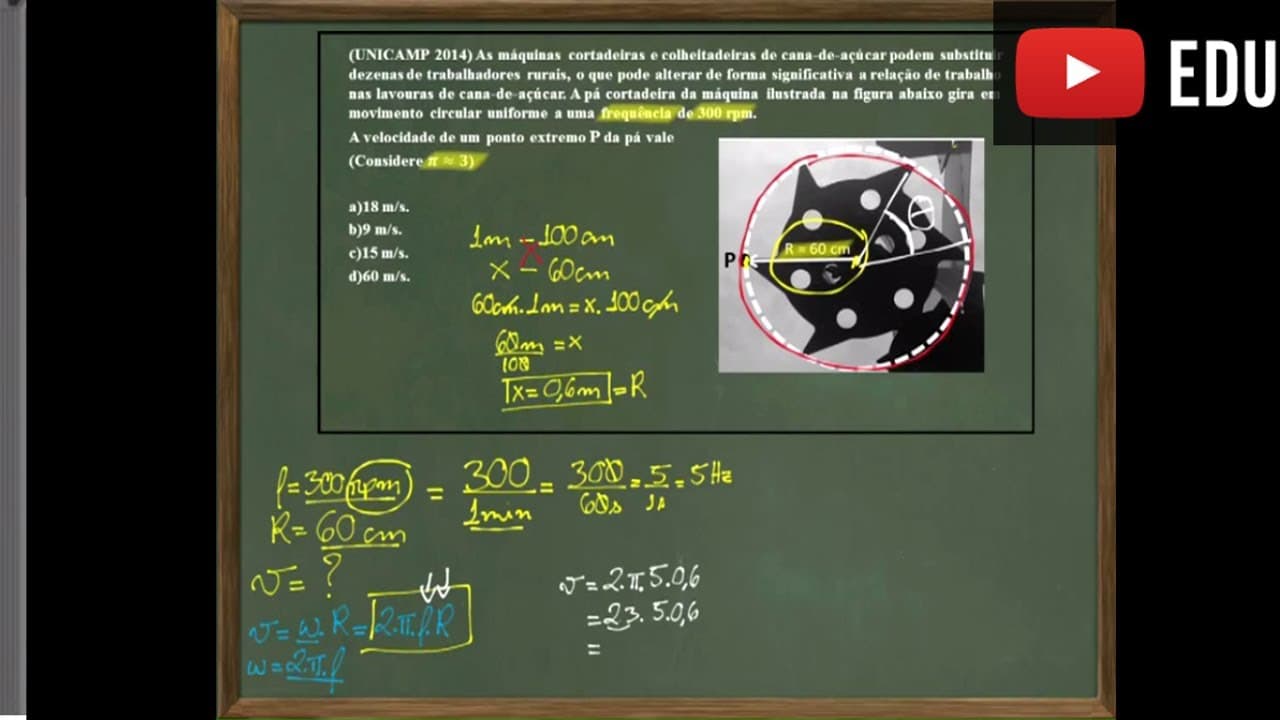 (UNICAMP 2014) As máquinas cortadeiras e colheitadeiras de cana-de-açúcar podem substituir
dezenas de trabalhadores rurais, o que pode alterar de forma significativa a relação de trabalho
nas lavouras de cana-de-açúcar. A pá cortadeira da máquina ilustrada na figura abaixo gira em
movimento circular uniforme a uma frequência de 300 rpm.
A velocidade de um ponto extremo P da pá vale
(Considere π ≈ 3)
a)18 m/s.
b)9 m/s.
c)15 m/s.
d)60 m/s.
1m - 100cm
x - 60cm
60cm.1m = x.100cm
60m/100 = x
x = 0,6m = R
P
R = 60 cm
θ
EDU
f = 300 rpm = 300/1min = 300/60s = 5/1s = 5Hz
R = 60 cm
v = ?
v = ω.R = 2.π.f.R
ω = 2.π.f
v = 2.π.5.0,6
= 2.3.5.0,6
=